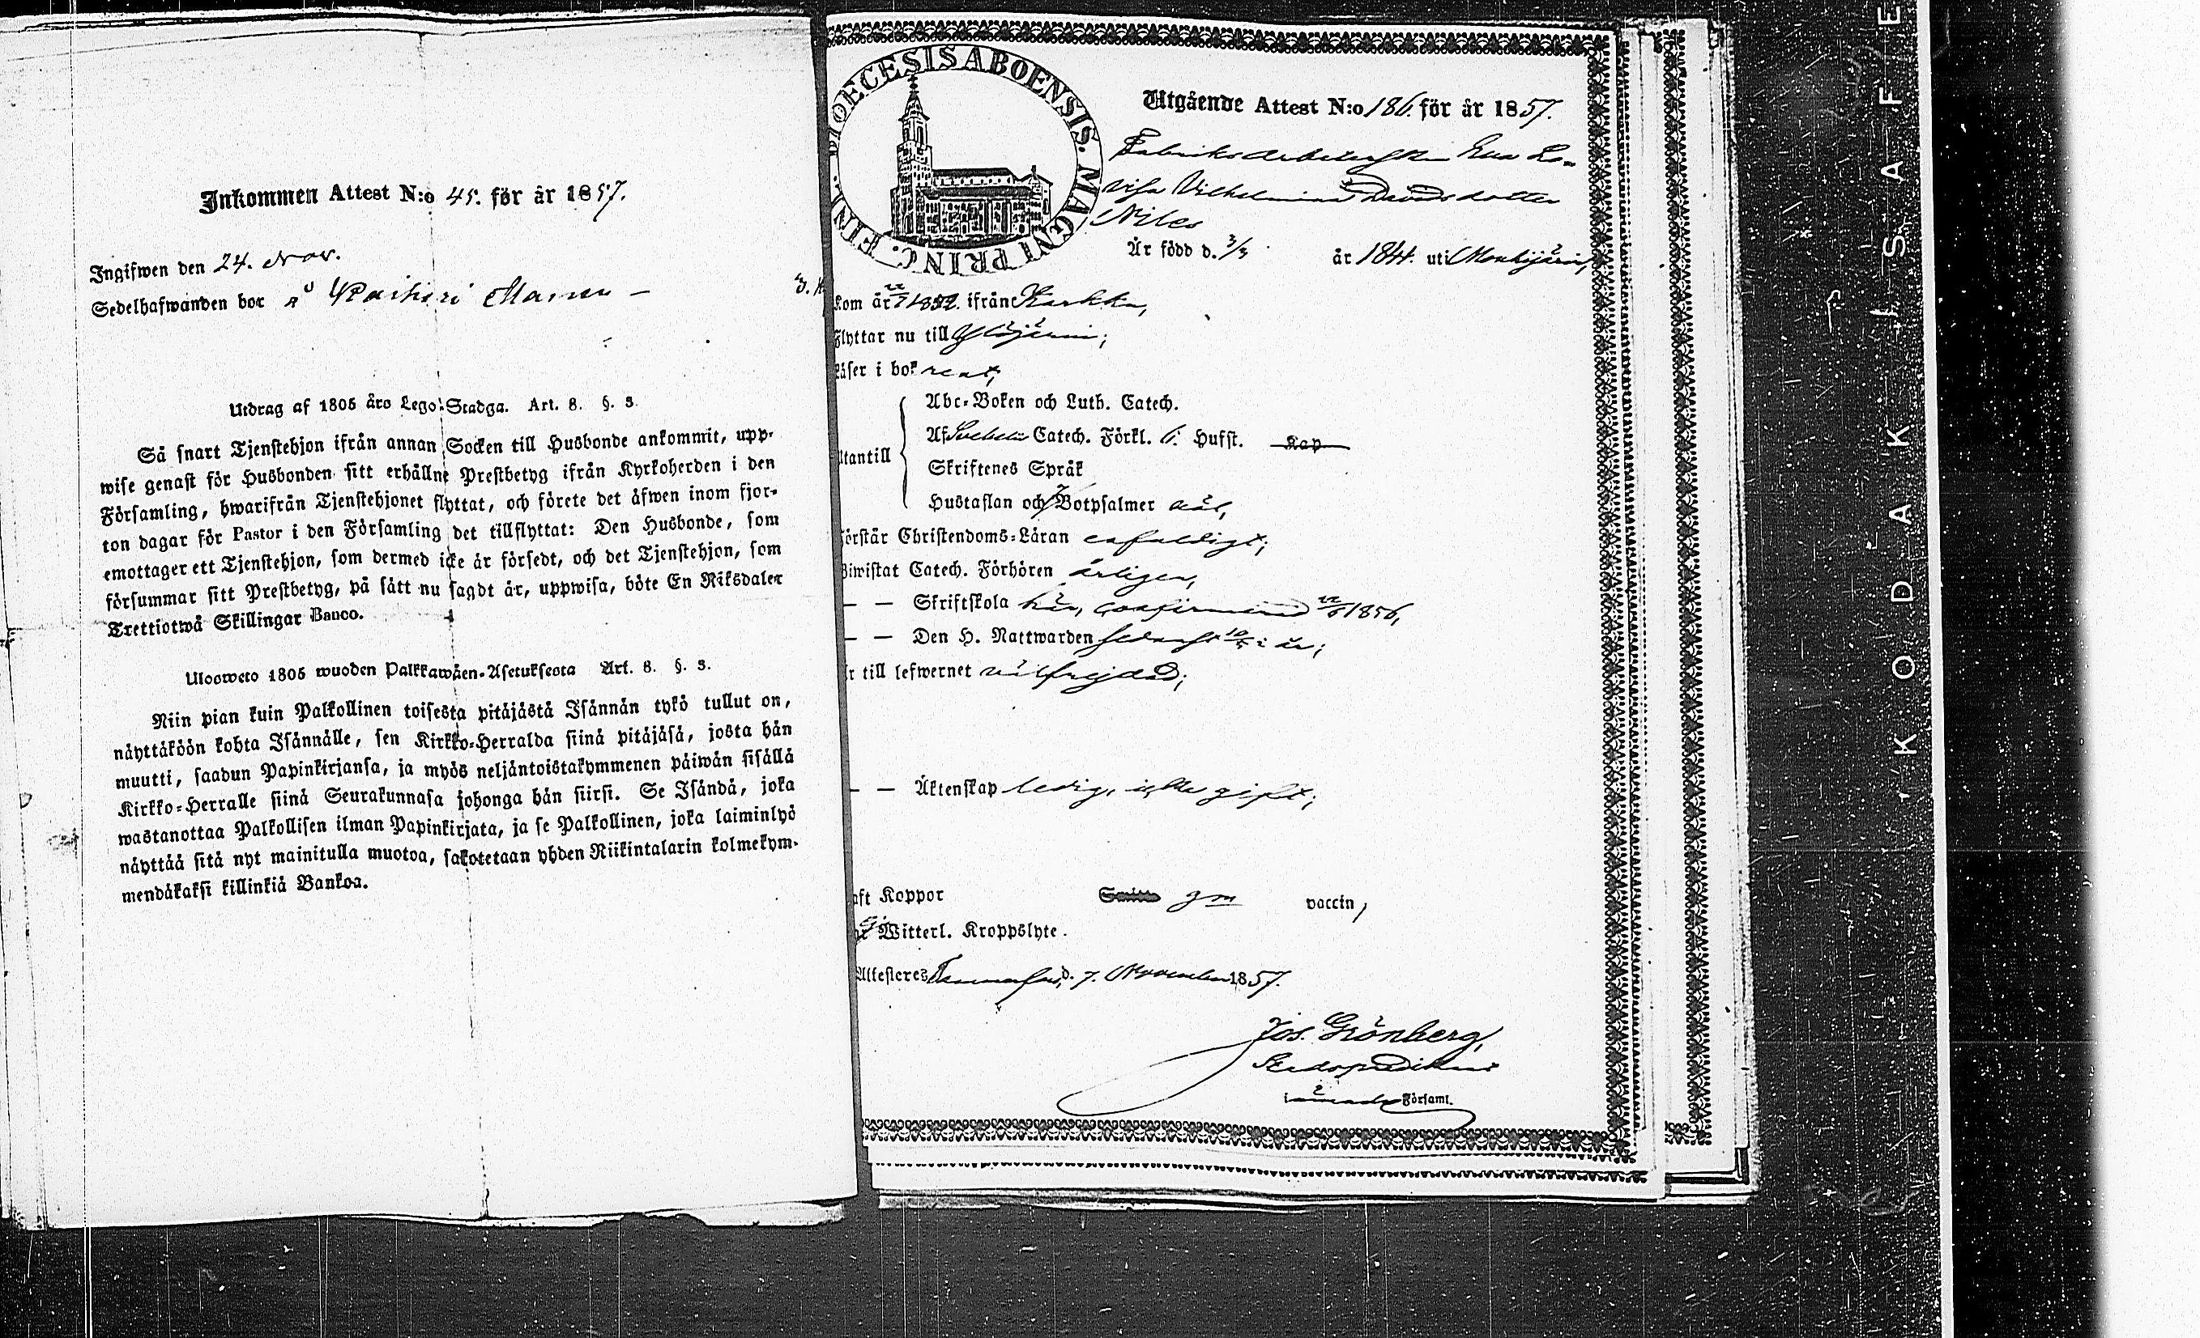 Inkommen Attest N:o 45. för år 1857.
Ingifwen den 24. Nov.
Sedelhafwanden bor å
Utdrag af 1805 års Lego-Stadga. Art. 8. §. 3.
Så snart Tjenstehjon ifrån annan Socken till Husbonde ankommit, upp-
wise genast för Husbonden sitt erhållne Prestbetyg ifrån Kyrkoherden i den
Församling, hwarifrån Tjenstehjonet flyttat, och förete det äfwen inom fjor-
ton dagar för Pastor i den Församling det tillflyttat: Den Husbonde, som
emottager ett Tjenstehjon, som dermed icke är försedt, och det Tjenstehjon, som
försummar sitt Prestbetyg, på sätt nu sagdt är, uppwisa, böte En Riksdaler
Trettiotwå Skillingar Banco.
Ulosweto 1805 wuoden Palkkawäen-Asetuksesta Art. 8. §. 3.
Niin pian kuin Palkollinen toisesta pitäjästä Isännän tykö tullut on,
näyttäköön kohta Isännälle, sen Kirkko-Herralda siinä pitäjäsä, josta hän
muutti, saadun Papinkirjansa, ja myös neljäntoistakymmenen päiwän sisällä
Kirkko-Herralle siinä Seurakunnasa johonga hän siirsi. Se Isändä, joka
wastanottaa Palkollisen ilman Papinkirjata, ja se Palkollinen, joka laiminlyö
näyttää sitä nyt mainitulla muotoa, sakotetaan yhden Riikintalarin kolmekym-
mendäkaksi killinkiä Bankoa.
DIOECESIS ABOENSIS. MAGNI PRINC. FINL.
Utgående Attest N:o 186. för år 1857.
Fabriks Arbeterskan Eva Lo-
visa Vilhelmina Davidsdotter
Är född d. 3/3 år 1844. uti
kom år 1852. ifrån Karkku,
Flyttar nu till Ylöjärvi;
läser i bok rent,
Abc-Boken och Luth. Catech.
Af Svebelii Catech. Förkl. 6. Hufst. Kap
utantill
Skriftenes Språk
Hustaflan och 7 Botpsalmer
förstår Christendoms-Läran enfaldigt;
Biwistat Catech. Förhören årligen,
— — Skriftskola här, confirmerad 1856,
— — Den H. Nattwarden senast i år;
är till lefwernet välfrejdad;
— — Äktenskap ledig, icke gift;
haft Koppor Smitto gm vaccin,
Witterl. Kroppslyte.
Attesteres Tammerfors, d. 7. November 1857.
Jos. Grönberg,
Stadspredikant
Församl.
KODAK ISAFE